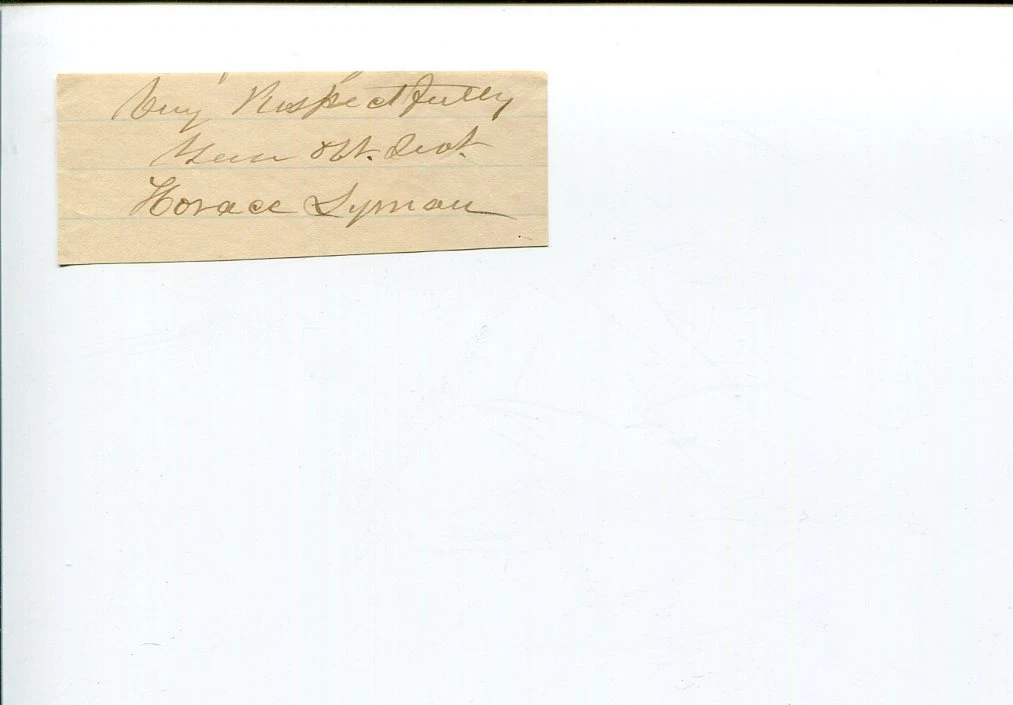 Very Respectfully
Your Obt. Servt.
Horace Lyman